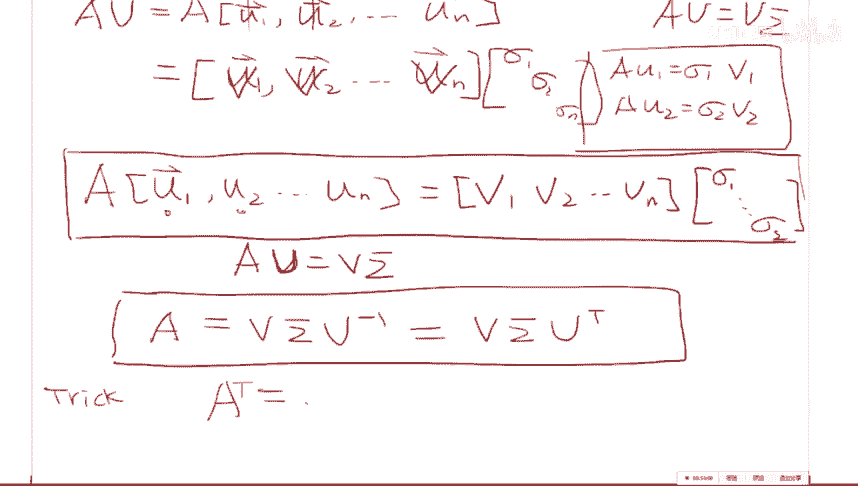 AU = A[u⃗₁, u⃗₂, ⋯ uₙ]   AU = VΣ
= [v⃗₁, v⃗₂ ⋯ v⃗ₙ][σ₁ σ₂ σₙ]   Au₁ = σ₁ V₁
Au₂ = σ₂ V₂
A[u⃗₁, u₂ ⋯ uₙ] = [V₁ V₂ ⋯ Vₙ][σ₁ ⋱ σ₂]
AU = VΣ
A = VΣU⁻¹ = VΣUᵀ
Trick   Aᵀ = .